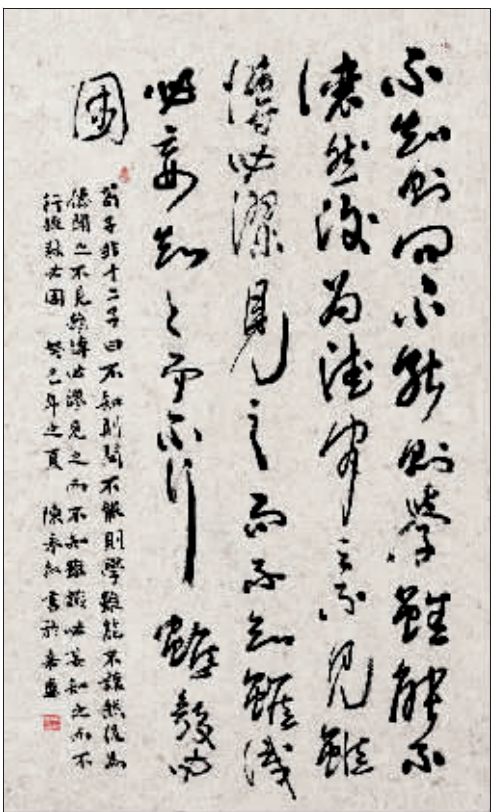 不知則問不能則學雖能不
讓然後為德聞之不見雖
博必謬見之而不知雖識
必妄知之而不行雖敦必
困
荀子非十二子曰不知則問不能則學雖能不讓然後為
德聞之不見雖博必謬見之而不知雖識必妄知之而不
行雖敦必困 癸巳年之夏 陳 書於